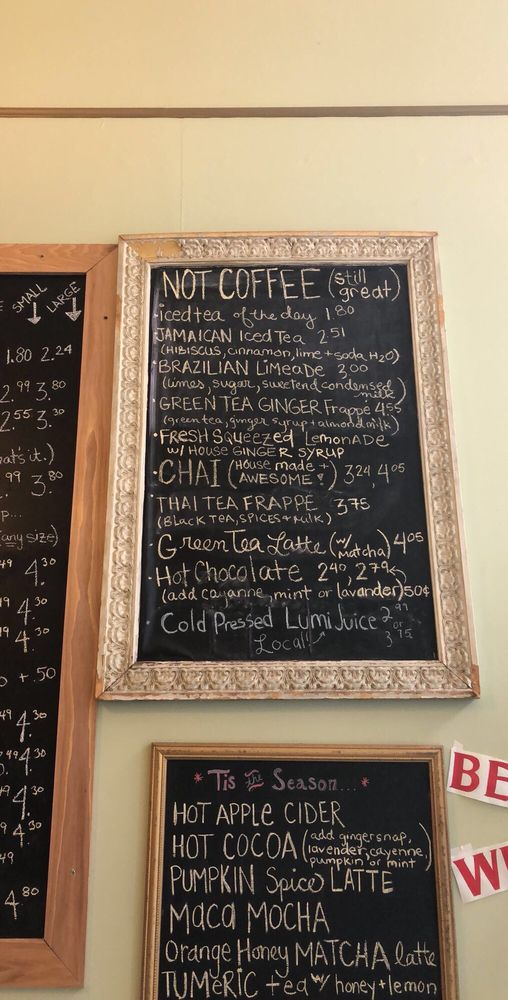 SMALL LARGE
1.80 2.24
2.99 3.80
2.55 3.30
hat's it.)
99 3.80
p...
(any size)
49 4.30
49 4.30
49 4.30
o + .50
49 4.30
49 4.30
49 4.30
49 4.30
49
4.80
NOT COFFEE (still great)
iced tea of the day 1.80
JAMAICAN Iced Tea 2.51
(HIBISCUS, cinnamon, lime + soda H2O)
BRAZILIAN LimeaDe 3.00
(limes, sugar, sweetend condensed milk)
GREEN TEA GINGER Frappe 4.55
(green tea, ginger syrup + almond milk)
FRESH SQueezed LemonADe
w/ HOUSE GINGER SYRUP
CHAI (HOUSE made + AWESOME!) 3.24, 4.05
THAI TEA FRAPPE 3.75
(Black TEA, SPICES + milk)
Green Tea Latte (w/ matcha) 4.05
Hot Chocolate 2.40, 2.79
(add cayanne, mint or lavander) 50¢
Cold Pressed Lumi Juice 2.99 or 3.75
Local!
*Tis the Season...*
HOT APPLE CIDER
HOT COCOA (add gingersnap, lavender, cayenne, pumpkin or mint)
PUMPKIN Spice LATTE
Maca MOCHA
Orange Honey MATCHA latte
TUMeRIC tea w/ honey + lemon
BE
W